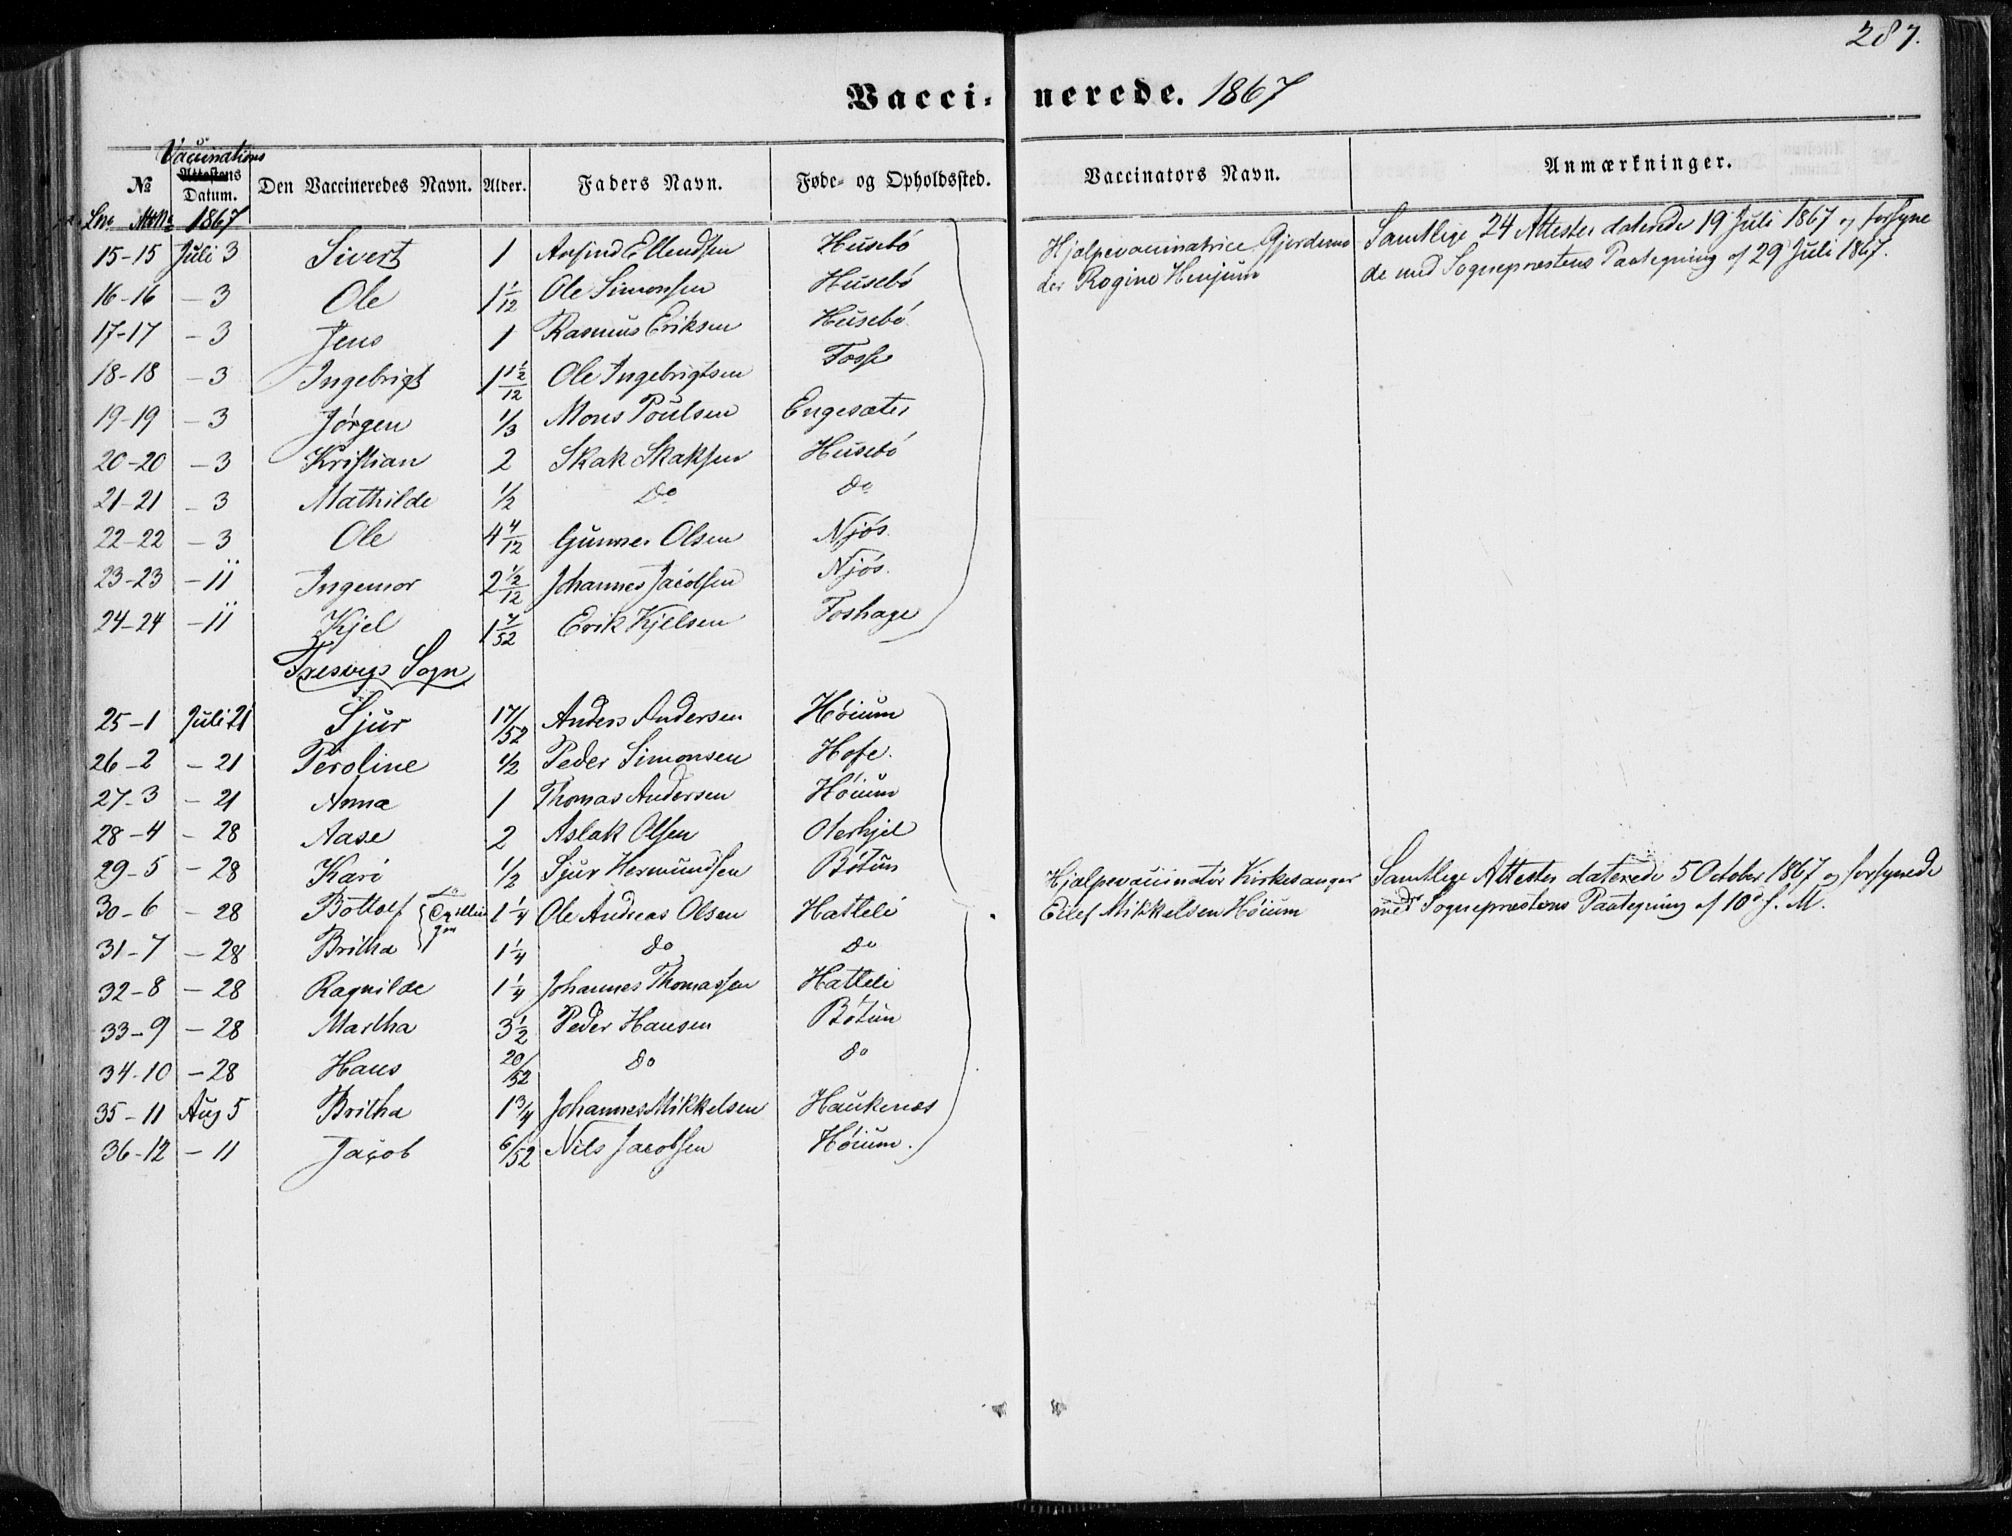 287.
Vaccinerede. 1867
Vaccinations
№ Attestens Datum. Den Vaccineredes Navn. Alder. Faders Navn. Føde- og Opholdssted. Vaccinators Navn. Anmærkninger.
Lno 1867
15-15 Juli 3 Sivert 1 Anfind Ellendsen Husebó Hjælpevaccinatrice Gjordemo Samtlige 24 Attester daterede 19 Juli 1867 og forsyne
der Rogine Henjum de med Sognepræstens Paategning af 29 Juli 1867.
16-16 - 3 Ole 1 1/12 Ole Simonsen Husebó
17-17 - 3 Jens 1 Rasmus Eriksen Husebó
18-18 - 3 Ingebrigt 1 1½/12 Ole Ingebrigtsen Fosse
19-19 - 3 Jørgen 1/3 Mons Poulsen Engesæter
20-20 - 3 Kristian 2 Skak Skaksen Husebó
21-21 - 3 Mathilde 1/2 Do do
22-22 - 3 Ole 4 4/12 Gunner Olsen Njós.
23-23 - 11 Ingemor 2 ½/12 Johannes Jacobsen Njós.
24-24 - 11 Kjel 1 7/52 Erik Kjelsen Foshage
Fresvigs Sogn
25-1 Juli 21 Sjur 17/52 Anders Andersen Høium
26-2 - 21 Peroline 1/2 Peder Simonsen Hofe.
27-3 - 21 Anna 1 Thomas Andersen Høium
28-4 - 28 Aase 2 Aslak Olsen Oterhjel
29-5 - 28 Kari 1/2 Sjur Hermundsen Bøtun Hjælpevaccinatør Kirkesanger Samtlige Attester daterede 5 October 1867 og forsynede
30-6 - 28 Bottolf Tvillin 1 1/4 Ole Andreas Olsen Hatteli Eilef Mikkelsen Høium med Sognepræstens Paategning af 10d f. M.
31-7 - 28 Britha 1 1/4 do do
32-8 - 28 Ragnilde 1 1/4 Johannes Thomassen Hatteli
33-9 - 28 Martha 3 1/2 Peder Hansen Bøtun
34-10 - 28 Hans 20/52 do do
35-11 Aug 5 Britha 1 3/4 Johannes Mikkelsen Haukenes
36-12 - 11 Jacob 6/52 Nils Jacobsen Høium.